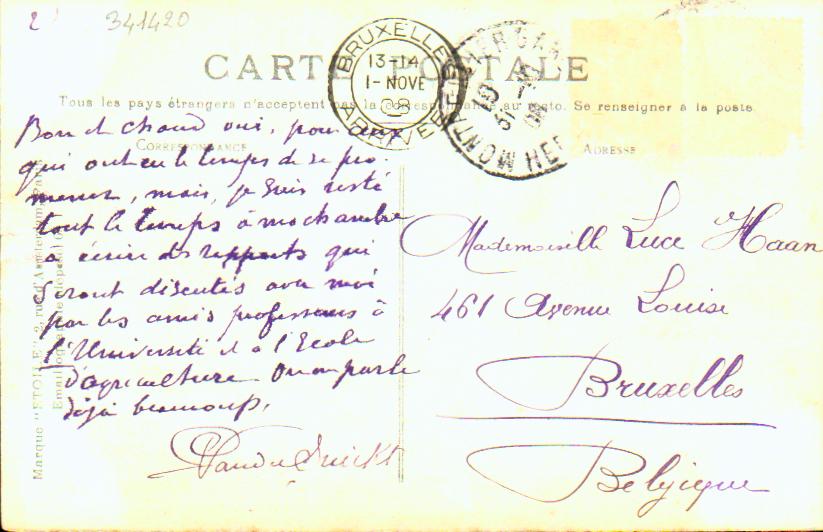 2 341420
CARTE POSTALE
Tous les pays étrangers n'acceptent pas la correspondance au recto. Se renseigner à la poste.
CORRESPONDANCE
ADRESSE
BRUXELLES
13-14
1-NOVE
08
ARRIVEE
Bon et chaud oui, pour ceux
qui ont eu le temps de se pro-
mener, mais, je suis resté
tout le temps à ma chambre
à écrire des rapports qui
seront discutés avec moi
par les amis professeurs à
l'Université et à l'Ecole
d'agriculture. On en parle
déjà beaucoup.
Mademoiselle Luce Haan
461 Avenue Louise
Bruxelles
Belgique
Marque "ETOILE"